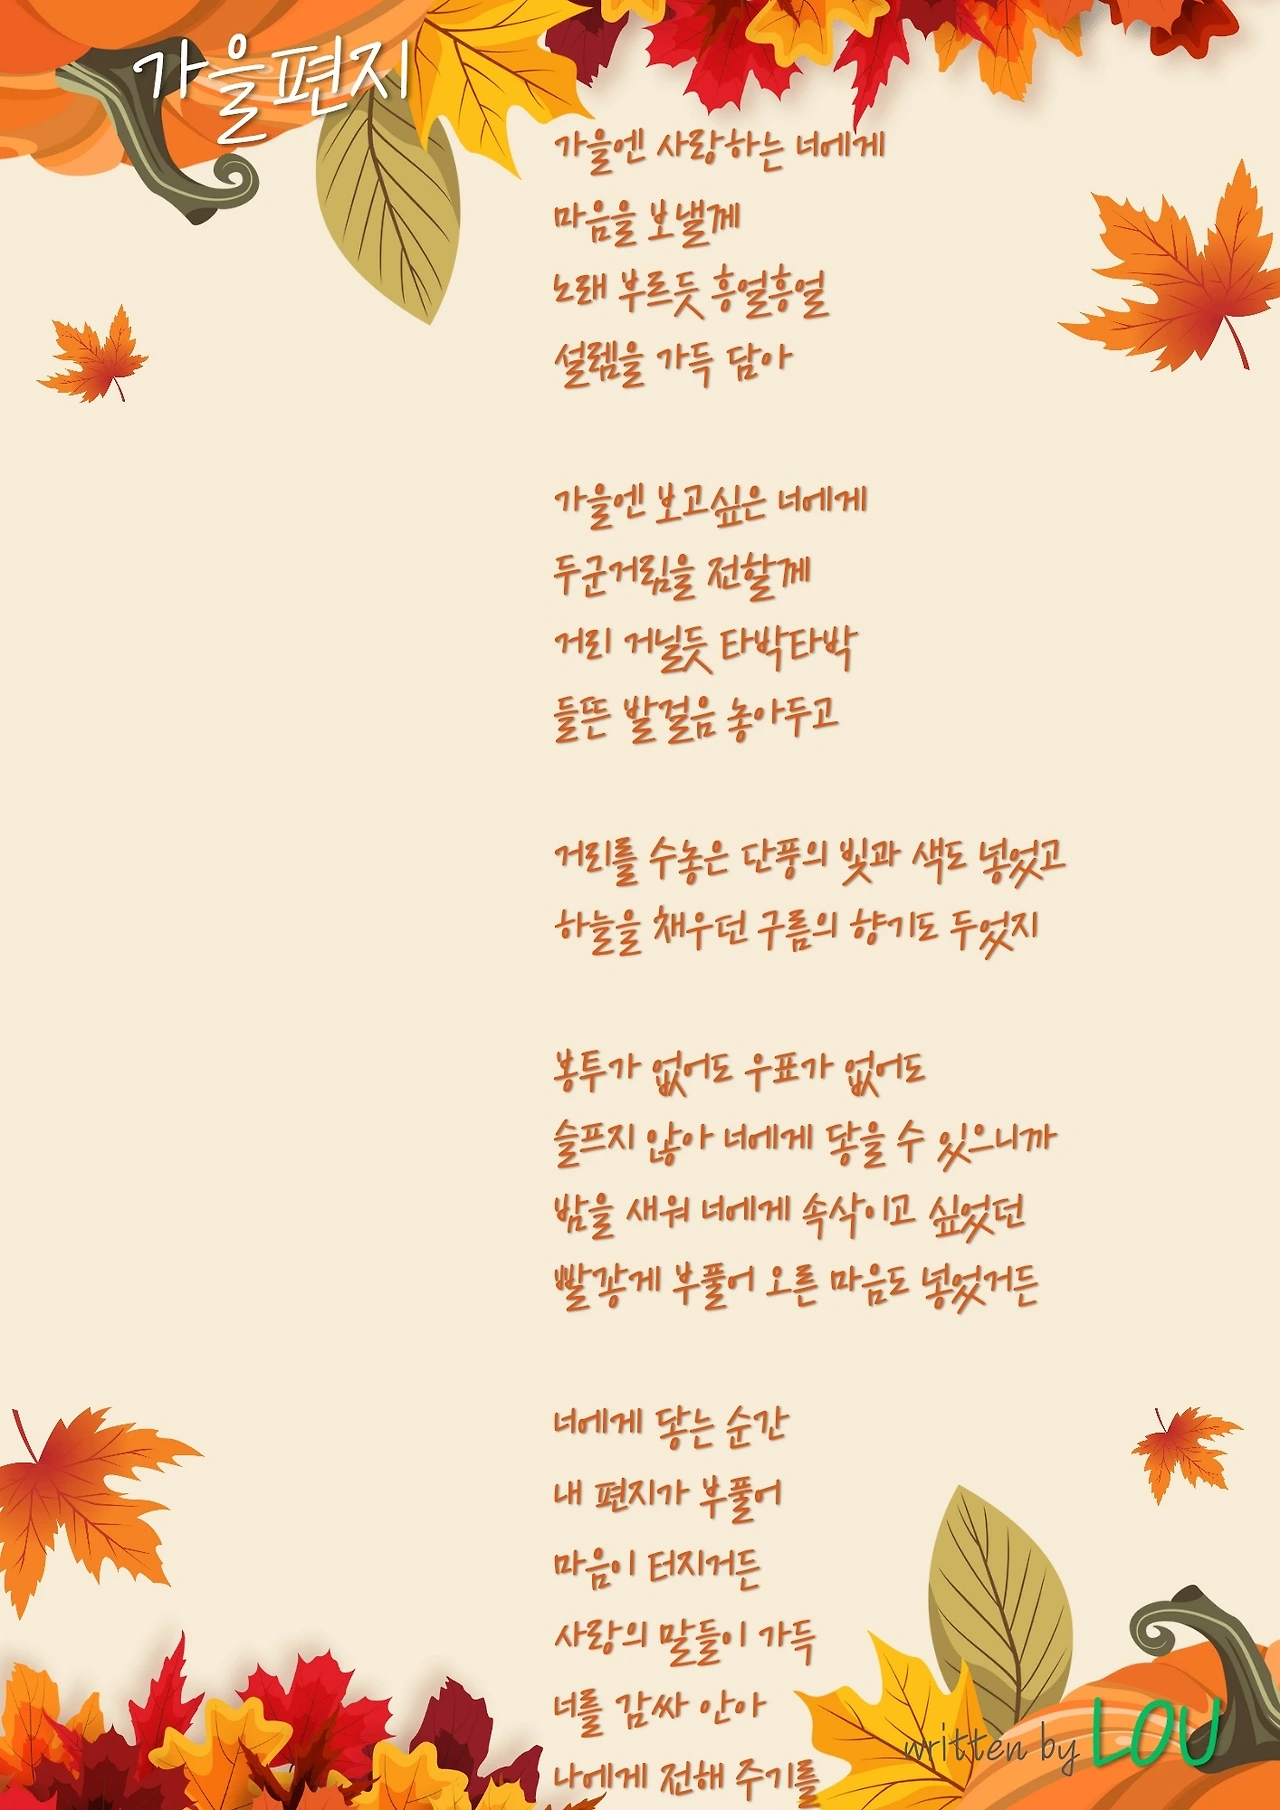 가을편지
가을엔 사랑하는 너에게
마음을 보낼께
노래 부르듯 흥얼흥얼
설렘을 가득 담아
가을엔 보고싶은 너에게
두군거림을 전할께
거리 거닐듯 타박타박
들뜬 발걸음 놓아두고
거리를 수놓은 단풍의 빛과 색도 넣었고
하늘을 채우던 구름의 향기도 두었지
봉투가 없어도 우표가 없어도
슬프지 않아 너에게 닿을 수 있으니까
밤을 새워 너에게 속삭이고 싶었던
빨갛게 부풀어 오른 마음도 넣었거든
너에게 닿는 순간
내 편지가 부풀어
마음이 터지거든
사랑의 말들이 가득
너를 감싸 안아
나에게 전해 주기를
written by LOU